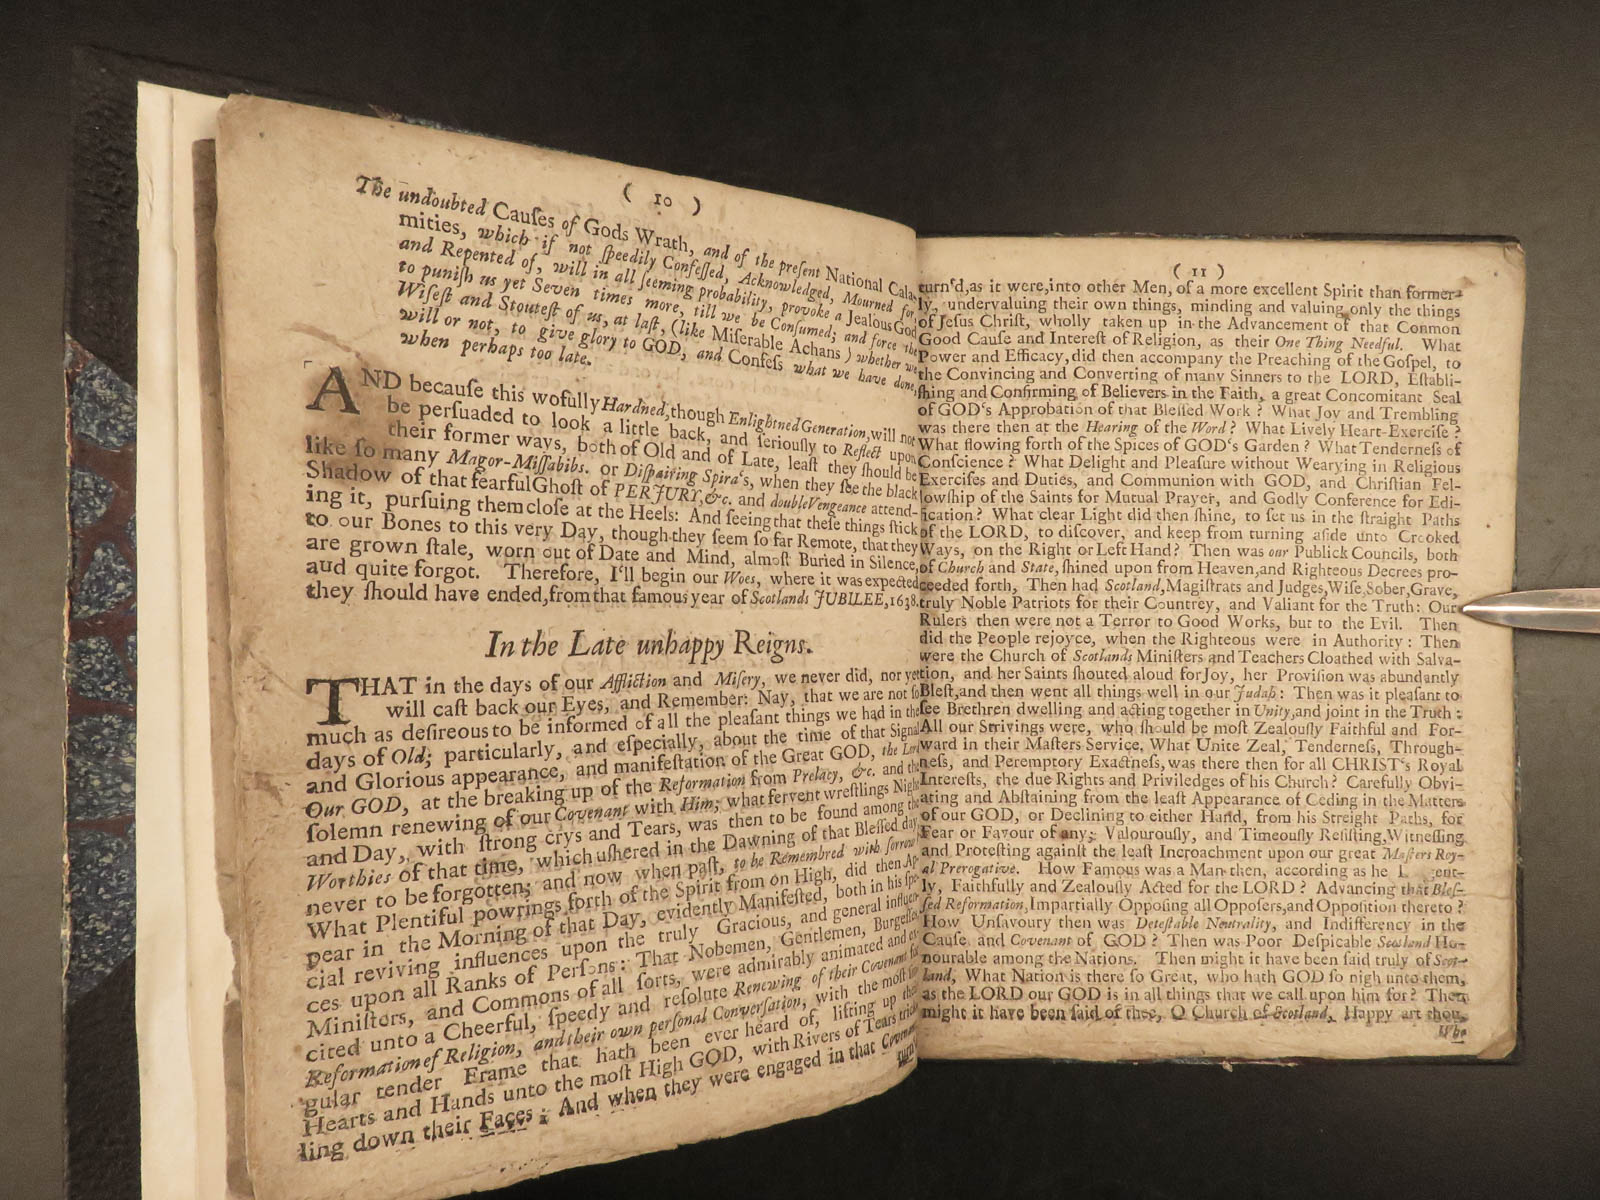 ( 10 )
The undoubted Cauſes of Gods Wrath, and of the preſent National Cala-
mities, which if not ſpeedily Confeſſed, Acknowledged, Mourned for,
and Repented of, will in all ſeeming probability, provoke a Jealous God
to puniſh us yet Seven times more, till we be Conſumed; and force the
Wiſeſt and Stouteſt of us, at laſt, (like Miſerable Achans) whether we
will or not, to give glory to GOD, and Confeſs what we have done,
when perhaps too late.
AND becauſe this wofully Hardned, though Enlightned Generation, will not
be perſuaded to look a little back, and ſeriouſly to Reflect upon
their former ways, both of Old and of Late, leaſt they ſhould be
like ſo many Magor-Miſſabibs. or Diſpairing Spira's, when they ſee the black
Shadow of that fearful Ghoſt of PERJURY, &c. and double Vengeance attend-
ing it, purſuing them cloſe at the Heels: And ſeeing that theſe things ſtick
to our Bones to this very Day, though they ſeem ſo far Remote, that they
are grown ſtale, worn out of Date and Mind, almoſt Buried in Silence,
aud quite forgot. Therefore, I'll begin our Woes, where it was expected
they ſhould have ended, from that famous year of Scotlands JUBILEE, 1638.
In the Late unhappy Reigns.
THAT in the days of our Affliction and Miſery, we never did, nor yet
will caſt back our Eyes, and Remember: Nay, that we are not ſo
much as deſireous to be informed of all the pleaſant things we had in the
days of Old; particularly, and eſpecially, about the time of that Signal
and Glorious appearance, and manifeſtation of the Great GOD, the Lord
Our GOD, at the breaking up of the Reformation from Prelacy, &c. and the
ſolemn renewing of our Covenant with Him; what fervent wreſtlings Night
and Day, with ſtrong crys and Tears, was then to be found among the
Worthies of that time, which uſhered in the Dawning of that Bleſſed day
never to be forgotten; and now when paſt, to be Remembred with ſorrow
What Plentiful powrings forth of the Spirit from on High, did then Ap-
pear in the Morning of that Day, evidently Manifeſted, both in his ſpe-
cial reviving influences upon the truly Gracious, and general influen-
ces upon all Ranks of Perſons: That Nobemen, Gentlemen, Burgeſſes
Miniſters, and Commons of all ſorts, were admirably animated and ex-
cited unto a Cheerful, ſpeedy and reſolute Renewing of their Covenant for
Reformation of Religion, and their own perſonal Converſation, with the moſt
gular tender Frame that hath been ever heard of, lifting up their
Hearts and Hands unto the moſt High GOD, with Rivers of Tears trick-
ling down their Faces: And when they were engaged in that Covenant
turn'd
( 11 )
turn'd, as it were, into other Men, of a more excellent Spirit than former-
ly, undervaluing their own things, minding and valuing only the things
of Jeſus Chriſt, wholly taken up in the Advancement of that Common
Good Cauſe and Intereſt of Religion, as their One Thing Needful. What
Power and Efficacy, did then accompany the Preaching of the Goſpel, to
the Convincing and Converting of many Sinners to the LORD, Eſtabli-
ſhing and Confirming of Believers in the Faith, a great Concomitant Seal
of GOD's Approbation of that Bleſſed Work? What Joy and Trembling
was there then at the Hearing of the Word? What Lively Heart-Exerciſe?
What flowing forth of the Spices of GOD's Garden? What Tenderneſs of
Conſcience? What Delight and Pleaſure without Wearying in Religious
Exerciſes and Duties, and Communion with GOD, and Chriſtian Fel-
lowſhip of the Saints for Mutual Prayer, and Godly Conference for Edi-
fication? What clear Light did then ſhine, to ſet us in the ſtraight Paths
of the LORD, to diſcover, and keep from turning aſide unto Crooked
Ways, on the Right or Left Hand? Then was our Publick Councils, both
of Church and State, ſhined upon from Heaven, and Righteous Decrees pro-
ceeded forth, Then had Scotland, Magiſtrats and Judges, Wiſe, Sober, Grave,
truly Noble Patriots for their Countrey, and Valiant for the Truth: Our
Rulers then were not a Terror to Good Works, but to the Evil. Then
did the People rejoyce, when the Righteous were in Authority: Then
were the Church of Scotlands Miniſters and Teachers Cloathed with Salva-
tion, and her Saints ſhouted aloud for Joy, her Proviſion was abundantly
Bleſt, and then went all things well in our Judah: Then was it pleaſant to
ſee Brethren dwelling and acting together in Unity, and joint in the Truth:
All our Strivings were, who ſhould be moſt Zealouſly Faithful and For-
ward in their Maſters Service. What Unite Zeal, Tenderneſs, Through-
neſs, and Peremptory Exactneſs, was there then for all CHRIST's Royal
Intereſts, the due Rights and Priviledges of his Church? Carefully Obvi-
ating and Abſtaining from the leaſt Appearance of Ceding in the Matters
of our GOD, or Declining to either Hand, from his Streight Paths, for
Fear or Favour of any; Valourouſly, and Timeouſly Reſiſting, Witneſſing
and Proteſting againſt the leaſt Incroachment upon our great Maſters Roy-
al Prerogative. How Famous was a Man then, according as he
ly, Faithfully and Zealouſly Acted for the LORD? Advancing that Bleſ-
ſed Reformation, Impartially Oppoſing all Oppoſers, and Oppoſition thereto?
How Unſavoury then was Deteſtable Neutrality, and Indifferency in the
Cauſe and Covenant of GOD? Then was Poor Deſpicable Scotland Ho-
nourable among the Nations. Then might it have been ſaid truly of Scot-
land, What Nation is there ſo Great, who hath GOD ſo nigh unto them,
as the LORD our GOD is in all things that we call upon him for? Then
might it have been ſaid of thee, O Church of Scotland, Happy art thou,
Who